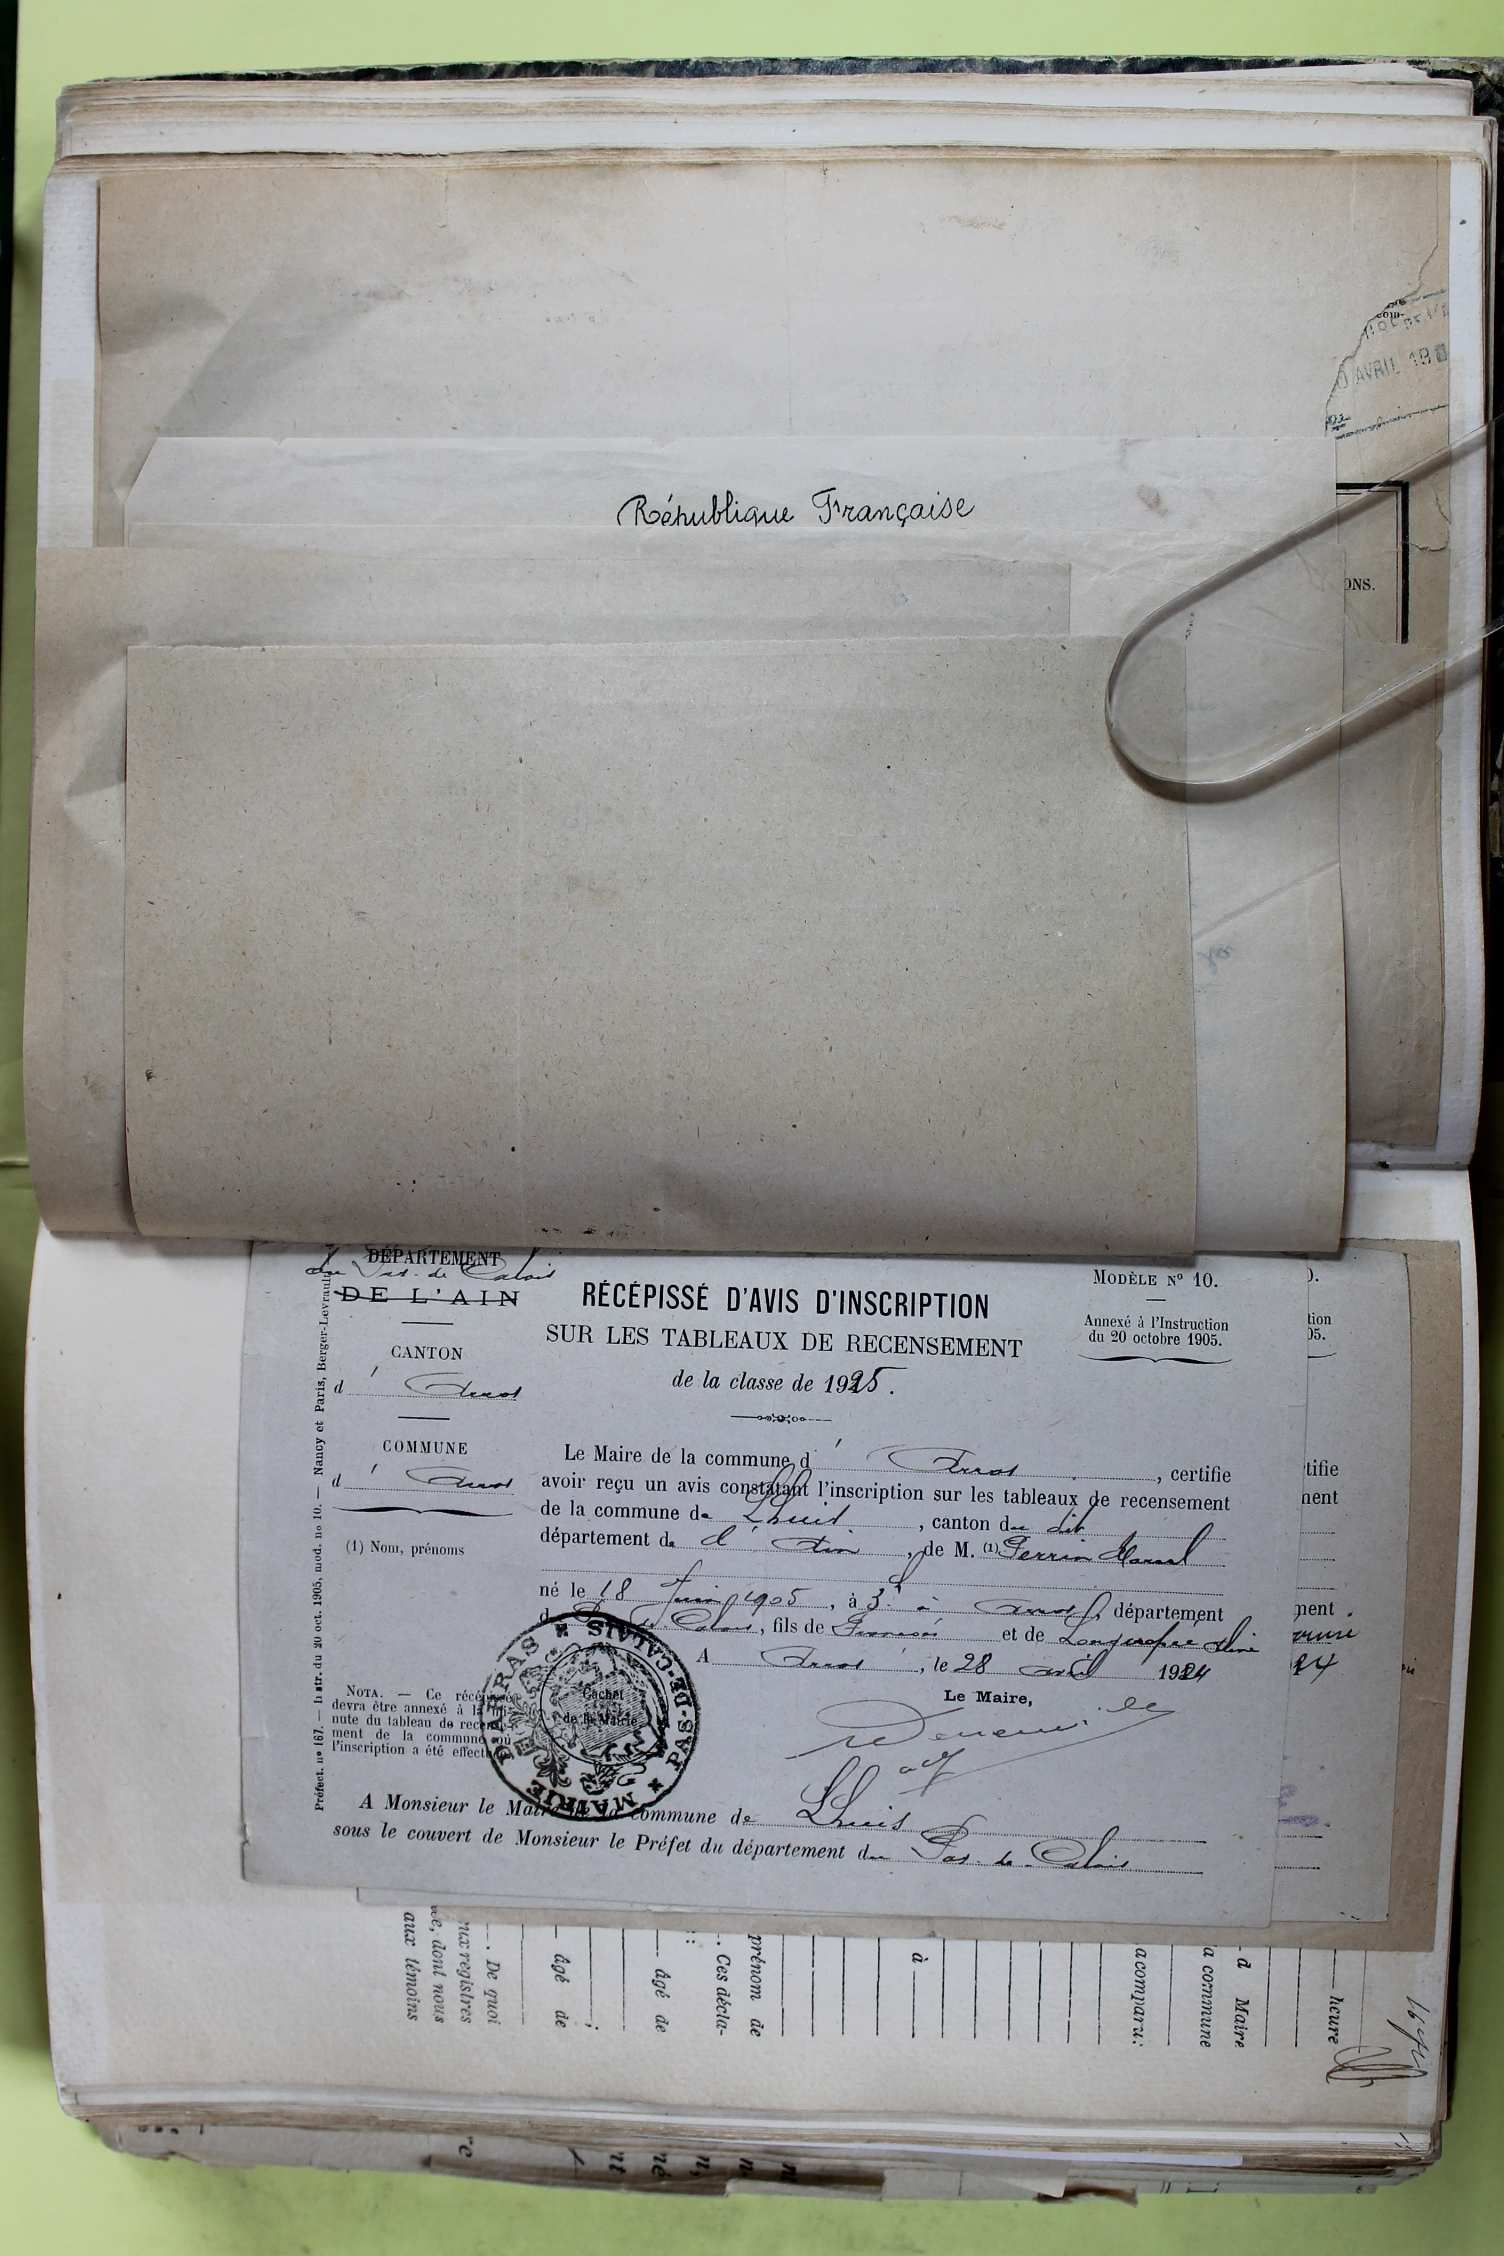 O AVRIL 18
République Française
ONS.
DÉPARTEMENT
du Pas-de-Calais
DE L'AIN
RÉCÉPISSÉ D'AVIS D'INSCRIPTION
SUR LES TABLEAUX DE RECENSEMENT
de la classe de 1925.
MODÈLE Nº 10.
Annexé à l'Instruction
du 20 octobre 1905.
CANTON
d' Arras
COMMUNE
d' Arras
(1) Nom, prénoms
Le Maire de la commune d' Arras, certifie
avoir reçu un avis constatant l'inscription sur les tableaux de recensement
de la commune de Lhuis, canton du dit
département de l'Ain, de M. (1) Perrin Marcel
né le 18 Juin 1905, à 3h à Arras, département
du Pas-de-Calais, fils de François et de Longuespée
A Arras, le 28 avril 1924
Le Maire,
NOTA. — Ce récépissé
devra être annexé à la mi-
nute du tableau de recense-
ment de la commune où
l'inscription a été effectuée
Cachet
de la Mairie
MAIRIE D'ARRAS * PAS-DE-CALAIS *
A Monsieur le Maire de la commune de Lhuis
sous le couvert de Monsieur le Préfet du département du Pas-de-Calais
Préfect. nº 167. — Instr. du 20 oct. 1905, mod. no 10. — Nancy et Paris, Berger-Levrault
tion
05.
tifie
ment
ment
heure
à Maire
la commune
a comparu:
à
prénom de
. Ces décla-
âgé de
âgé de
. De quoi
ux registres
e, dont nous
aux témoins